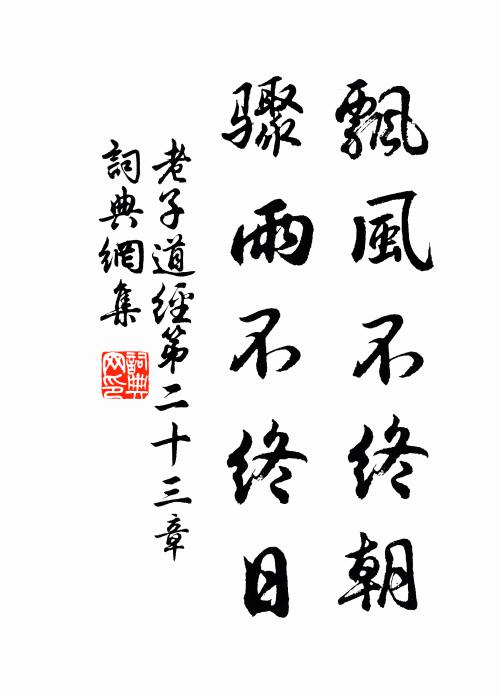 飄風不終朝
驟雨不終日
老子道經第二十三章
詞典網集
詞典网印